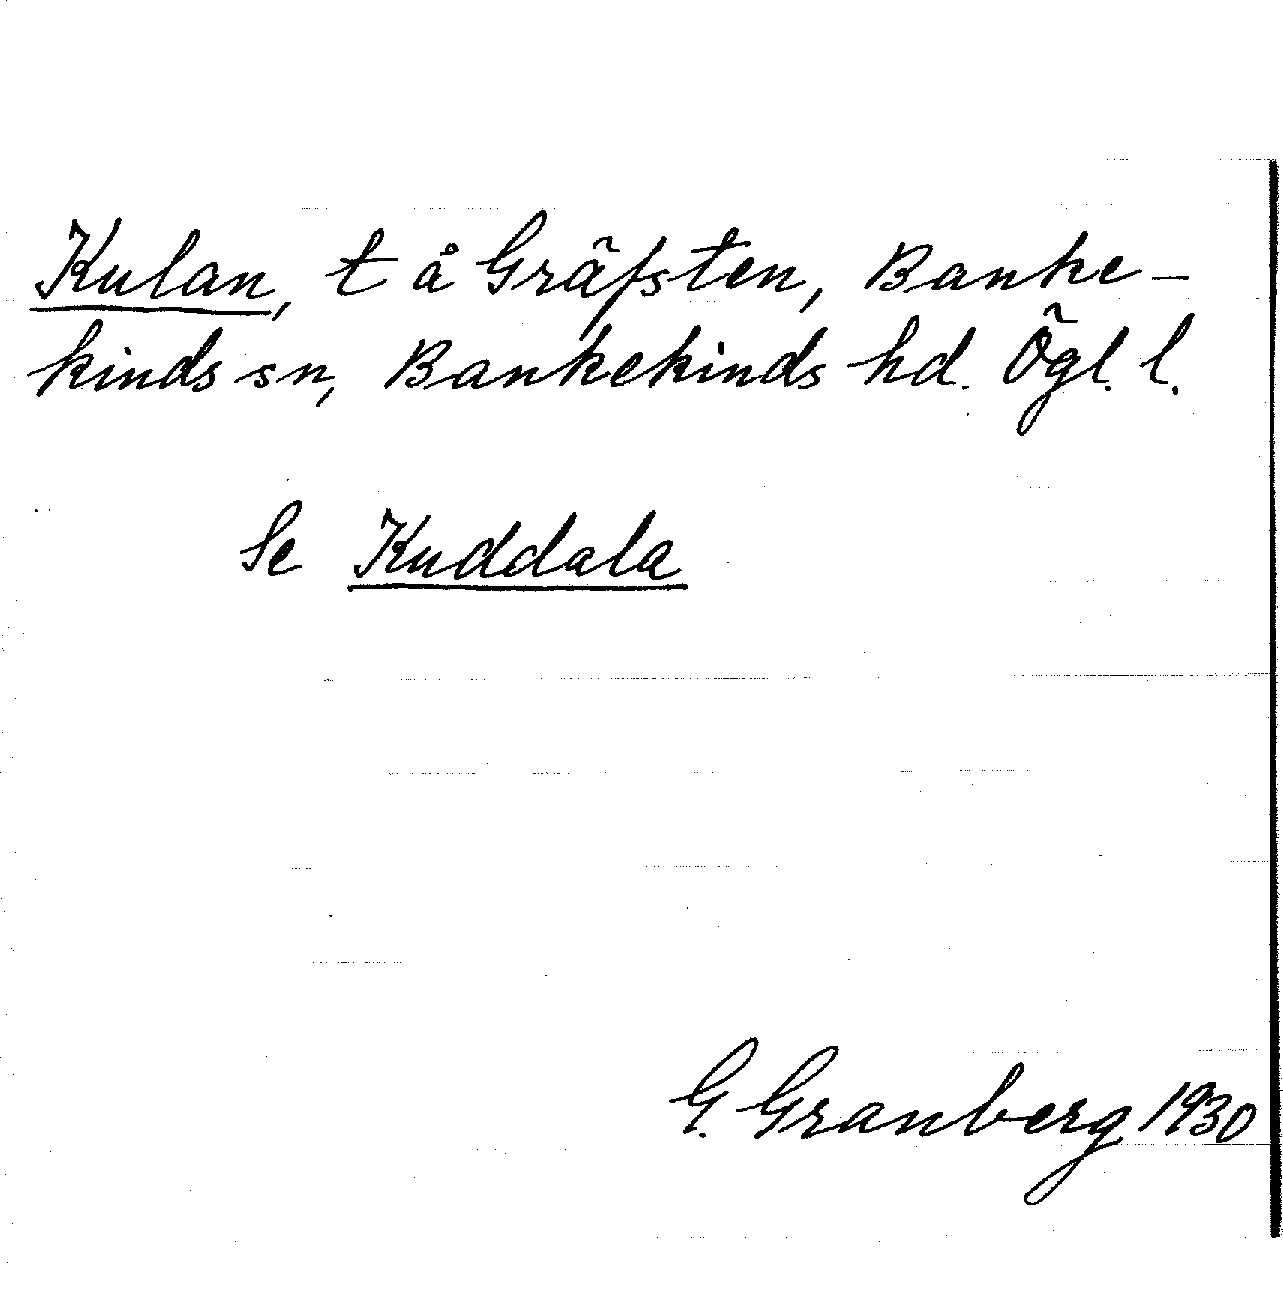 Kulan, t å Gräfsten, Banke-
kinds sn, Bankekinds hd. Ögl. l.
Se Kuddala
G. Granberg 1930